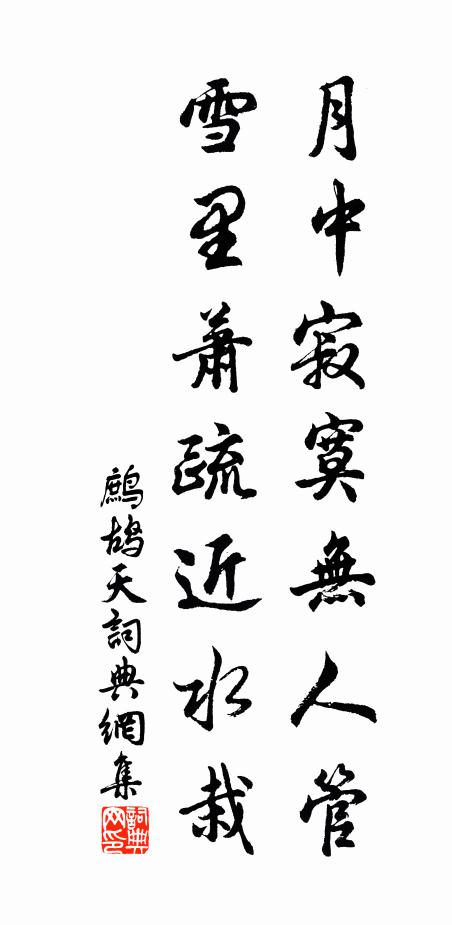 月中寂寞無人管
雪里蕭疏近水栽
鷓鴣天詞典網集
詞典網印